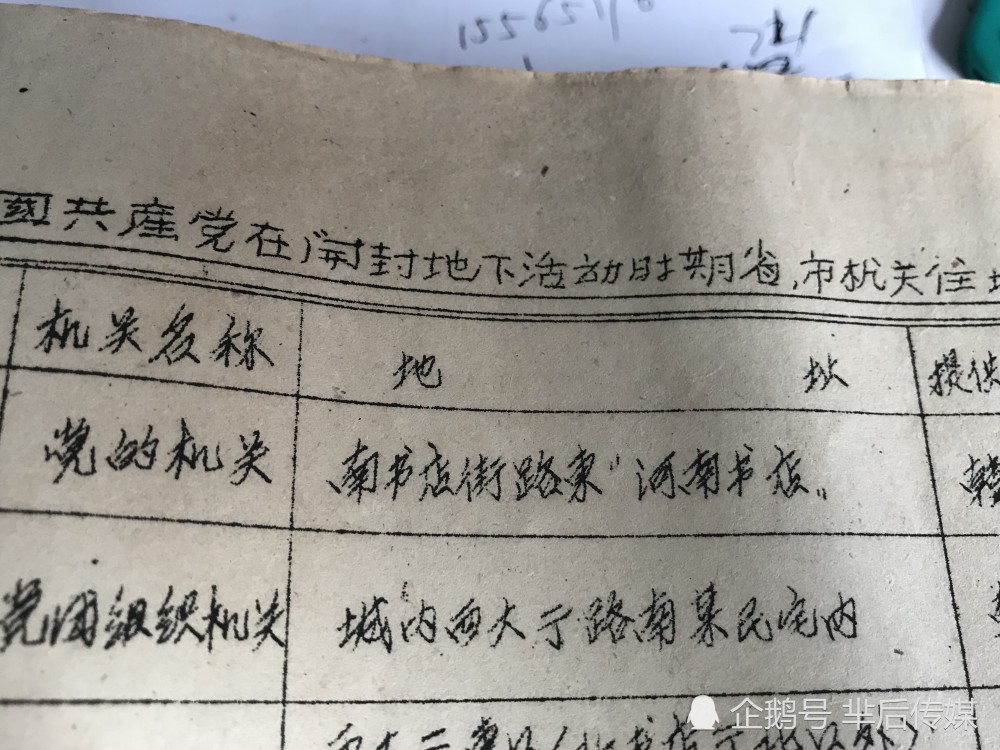 國共產党在开封地下活动时期省、市机关住
机关名称 地 址 提供
党的机关 南书店街路东"河南书店"
党团组织机关 城内西大厅路南某民宅内
企鹅号 芈后传媒